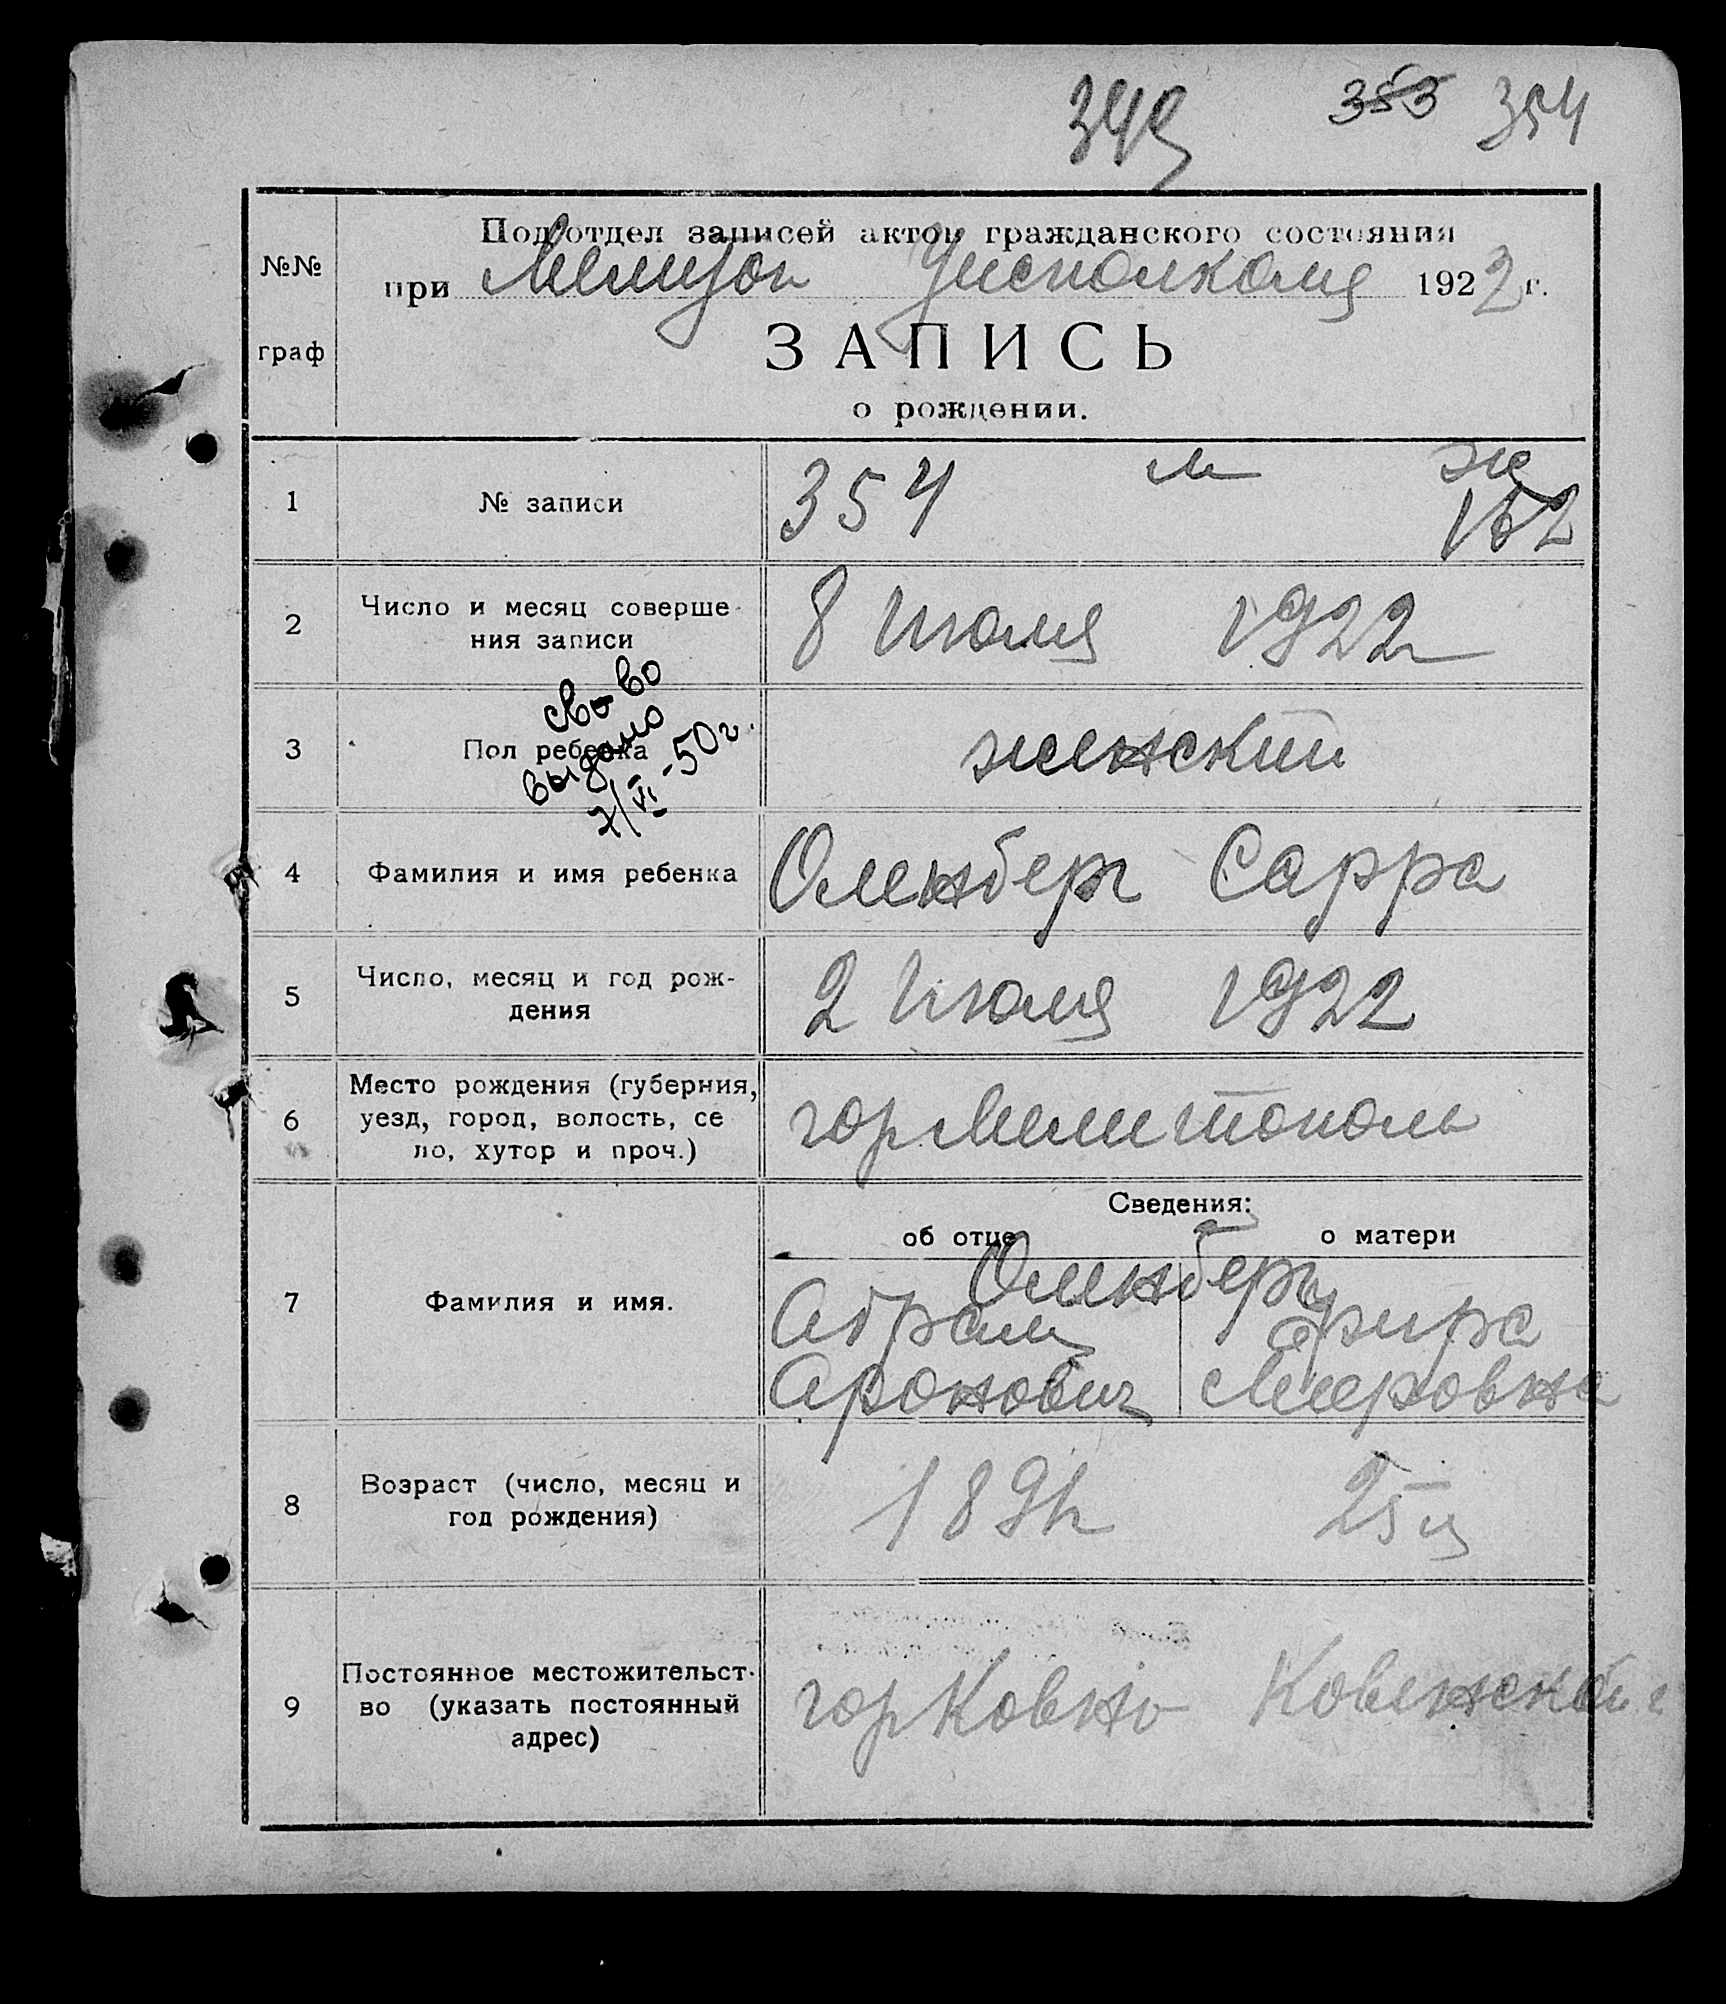 349 353 354
№№
граф
Подотдел записей актов гражданского состояния
при Мелитоп Уисполкоме 1922 г.
ЗАПИСЬ
о рождении.
1 № записи 354 м ж
162
2 Число и месяц соверше
ния записи 8 Июля 1922
св-во
выдано
7/VI-50 г.
3 Пол ребенка женский
4 Фамилия и имя ребенка Оленберг Сарра
5 Число, месяц и год рож-
дения 2 Июля 1922
6 Место рождения (губерния,
уезд, город, волость, се
ло, хутор и проч.) гор Мелитополь
Сведения:
об отце о матери
7 Фамилия и имя. Оленберг
Абрам
Аронович Мееровна
8 Возраст (число, месяц и
год рождения) 25 л
9 Постоянное местожительст-
во (указать постоянный
адрес) гор Ковно Ковенской г